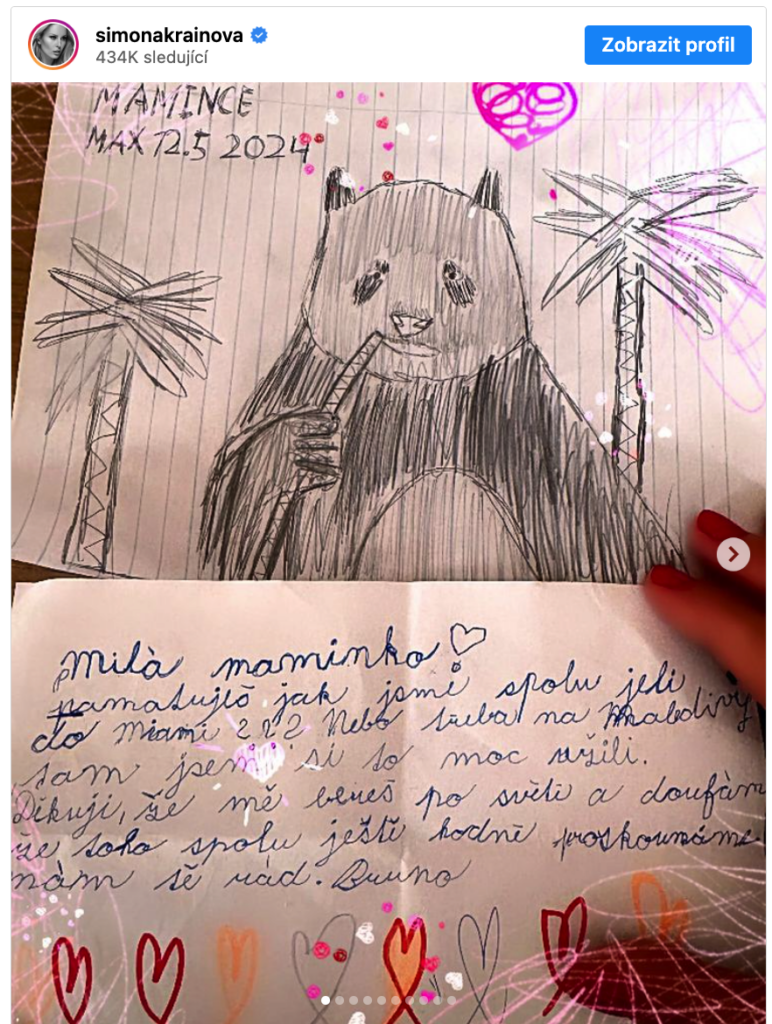 simonakrainova
434K sledující
Zobrazit profil
MAMINCE
MAX 12.5 2024
Milà maminko!
pamatuješ jak jsme spolu jeli
do Miami ??? Nebo třeba na Maledivy
tam jsem si to moc užili.
Děkuji, že mě bereš po světě a doufám
že toho spolu ještě hodně proskoumáme.
mám tě rád. Bruno